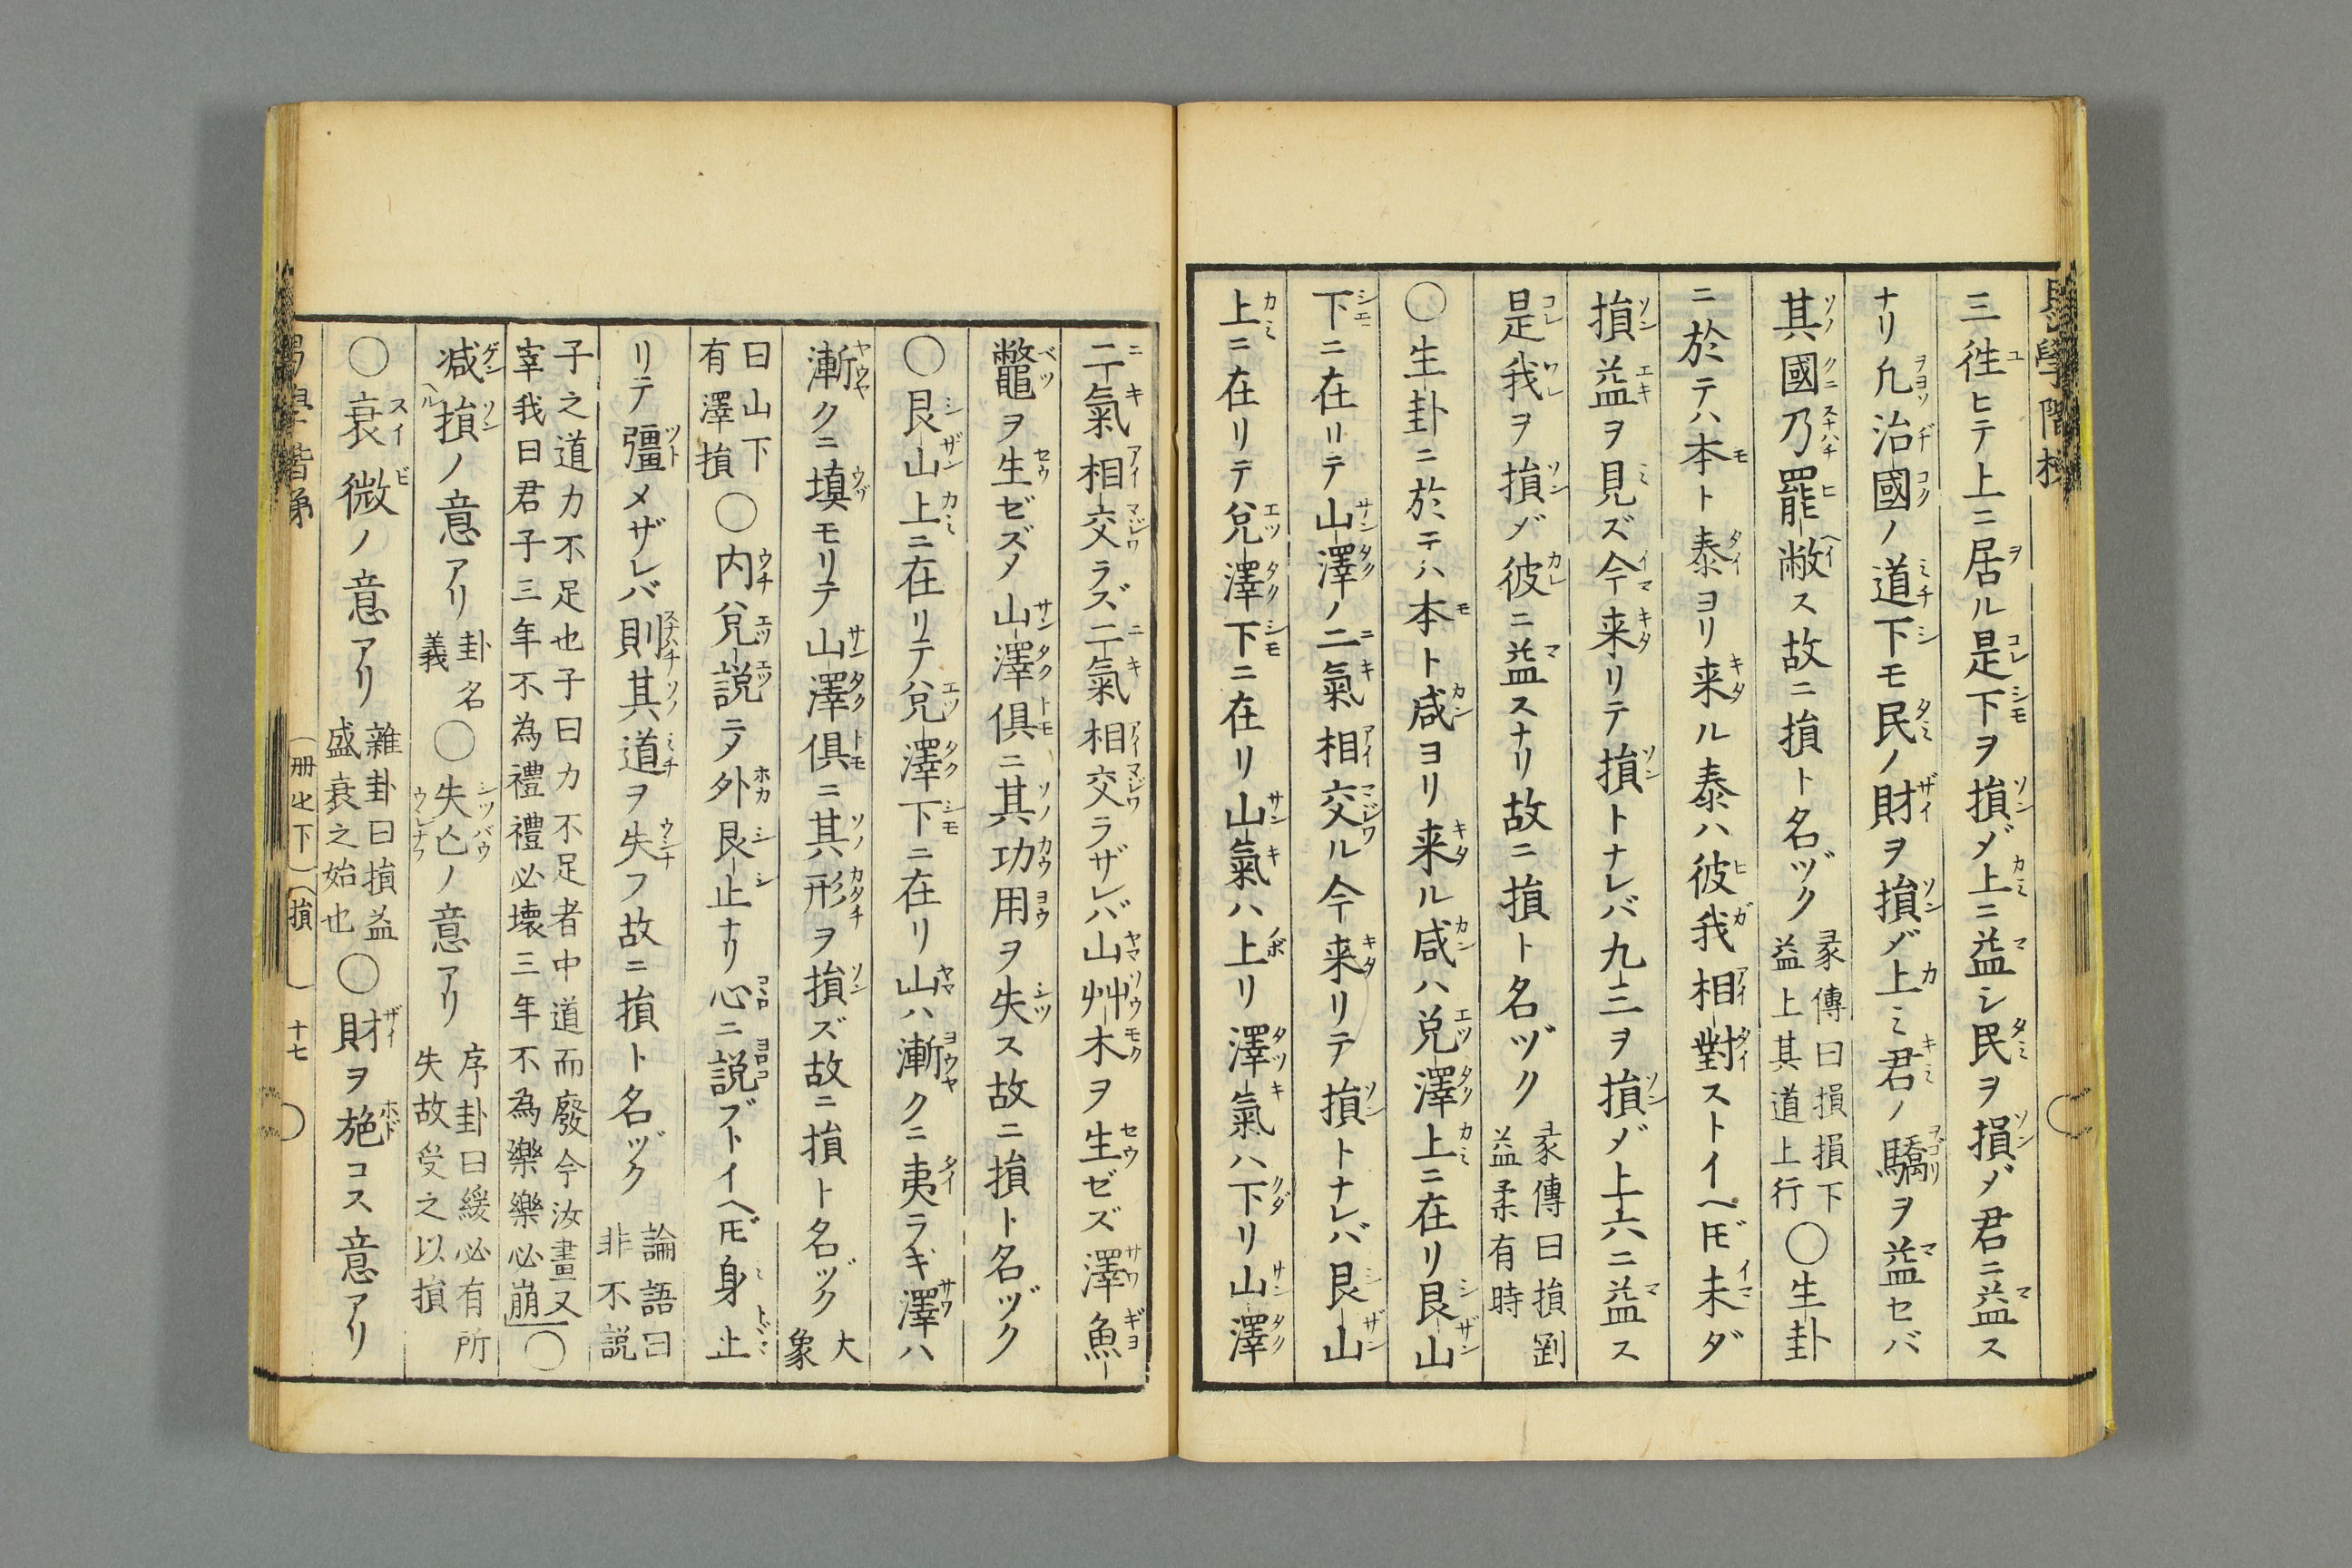 三徃ヒテ上ニ居ル是下ヲ損〆上ニ益シ民ヲ損〆君ニ益ス
ナリ凡治國ノ道下モ民ノ財ヲ損〆上ミ君ノ驕ヲ益セバ
其國乃罷敝ス故ニ損ト名ヅク彖傳曰損損下益上其道上行〇生卦
ニ於テハ本ト泰ヨリ来ル泰ハ彼我相對ストイヘ𪜈未ダ
損益ヲ見ズ今来リテ損トナレバ九三ヲ損〆上六ニ益ス
是我ヲ損〆彼ニ益スナリ故ニ損ト名ヅク彖傳曰損剛益柔有時
〇生卦ニ於テハ本ト咸ヨリ来ル咸ハ兌澤上ニ在リ艮山
下ニ在リテ山澤ノ二氣相交ル今来リテ損トナレバ艮山
上ニ在リテ兌澤下ニ在リ山氣ハ上リ澤氣ハ下リ山澤
二氣相交ラズ二氣相交ラザレバ山艸木ヲ生ゼズ澤魚
鼈ヲ生ゼズ〆山澤俱ニ其功用ヲ失ス故ニ損ト名ヅク
〇艮山上ニ在リテ兌澤下ニ在リ山ハ漸クニ夷ラギ澤ハ
漸クニ填モリテ山澤俱ニ其形ヲ損ズ故ニ損ト名ヅク大象
曰山下有澤損〇内ハ兌説ニ〆外艮止ナリ心ニ説ブトイヘ𪜈身止
リテ彊メザレバ則其道ヲ失フ故ニ損ト名ヅク論語曰非不説
子之道力不足也子曰力不足者中道而廢今汝畫又宰我曰君子三年不為禮禮必壊三年不為樂樂必崩〇
减損ノ意アリ卦名義〇失亾ノ意アリ序卦曰緩必有所失故受之以損
〇衰微ノ意アリ雜卦曰損益盛衰之始也〇財ヲ施コス意アリ
易學階梯
冊之下 損 十七